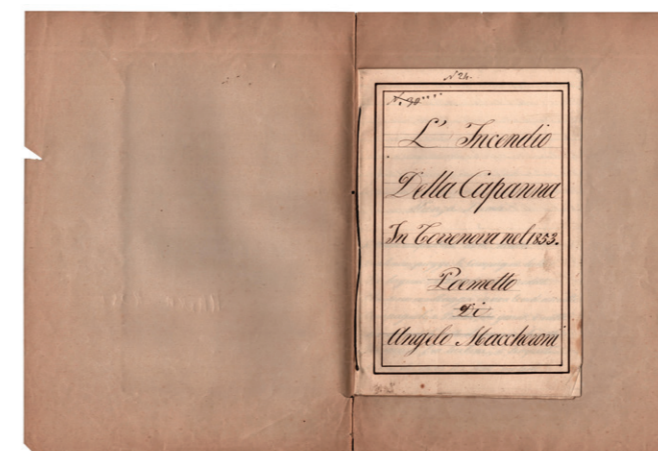 N 24.
L' Incendio
Della Capanna
In Torrenova nel 1853.
Poemetto
Di
Angelo Maccheroni